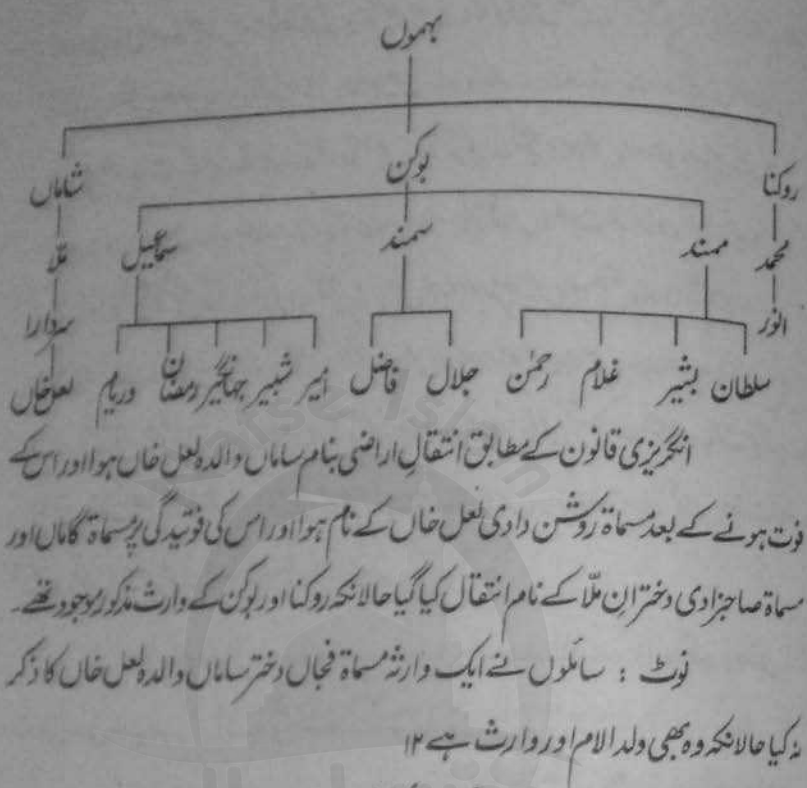 بہموں
شاماں بوکن روکنا
ملّا سمٰعیل سمند ممند محمد
سردارا انور
لعل خاں وریام رمضان جہانگیر شبیر امیر فاضل جلال رحمٰن غلام بشیر سلطان
انگریزی قانون کے مطابق انتقالِ اراضی بنام ساماں والدہ لعل خاں ہوا اور اس کے
فوت ہونے کے بعد مسماۃ روشن دادی لعل خاں کے نام ہوا اور اس کی فوتیدگی پر مسماۃ گاماں اور
مسماۃ صاحبزادی دخترانِ ملّا کے نام انتقال کیا گیا حالانکہ روکنا اور بوکن کے وارث مذکور موجود تھے۔
نوٹ : سائلوں نے ایک وارثہ مسماۃ فجاں دختر ساماں والدہ لعل خاں کا ذکر
نہ کیا حالانکہ وہ بھی ولد الام اور وارث ہے ۱۲